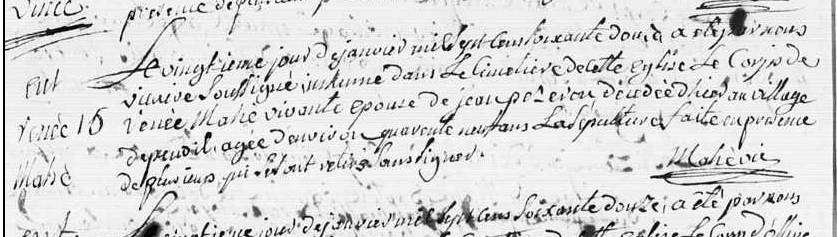 présence de plusieurs
Le vingtieme jour de janvier mil sept cens soixante douze a été par nous
ent vicaire soussigné inhumé dans Le Cimetiere de cette Eglise Le Corps de
renée 15 renée Mahé vivante epouse de jean decedée d'hier au village
Mahé agée d'environ quarente neuf ans La sépulture faite en présence
de plusieurs qui se sont retirés sans signer.
Mahé vic
ent Le vingtieme jour de janvier mil sept cens soixante douze, a été par nous
Eglise Le Corps